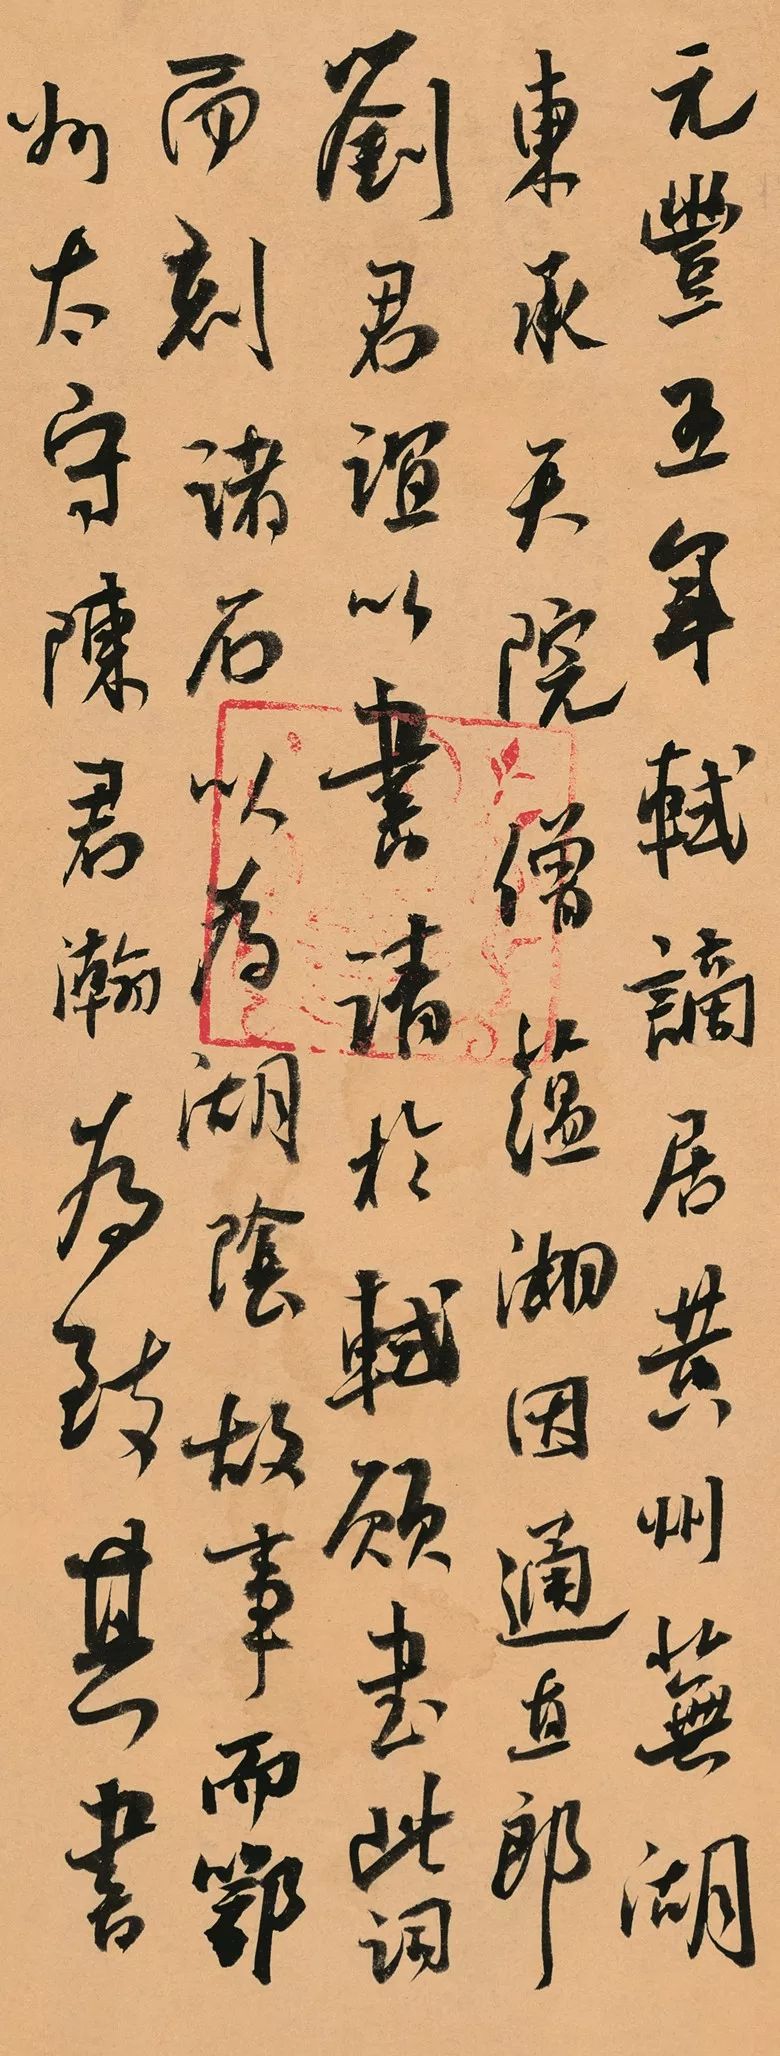 元豐五年軾謫居黄州蕪湖
東承天院僧蘊湘因通直郎
劉君誼以書請於軾願書此詞
而刻諸石以為湖陰故事而鄂
州太守陳君瀚為致其書